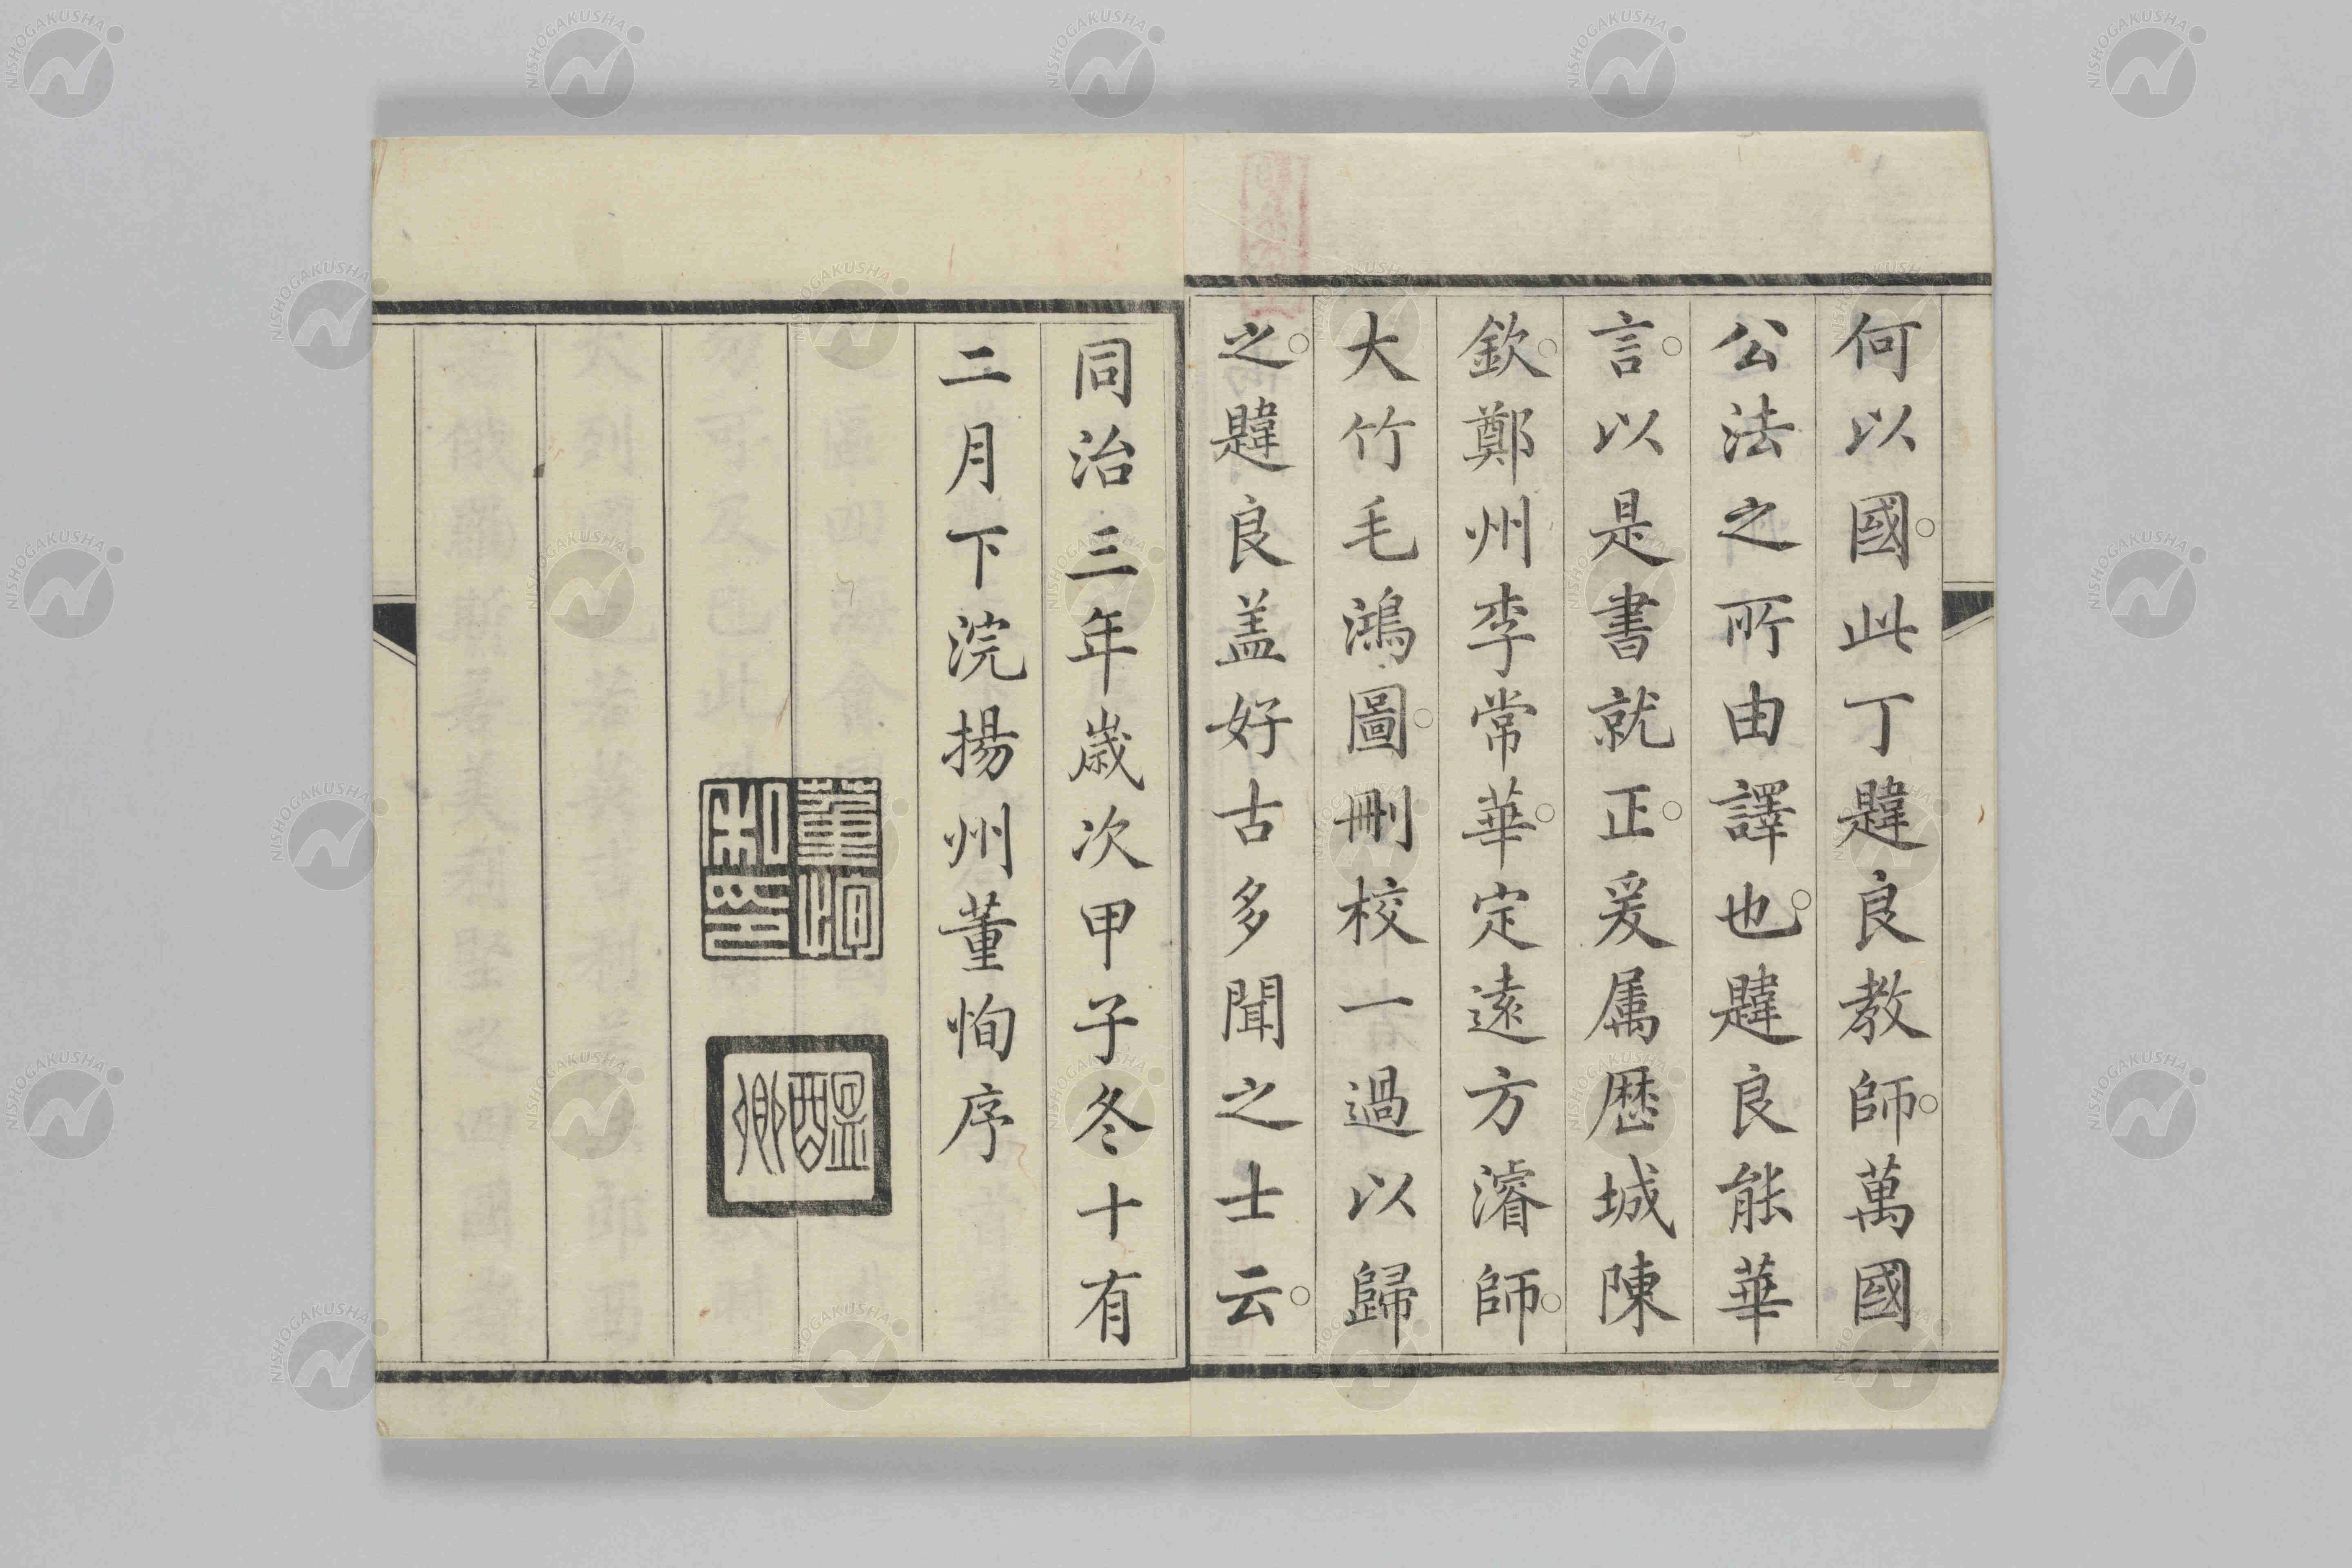 何以國。此丁韙良教師。萬國
公法之所由譯也。韙良能華
言。以是書就正。爰属歷城陳
欽。鄭州李常華。定遠方濬師。
大竹毛鴻圖。刪校一過以歸
之。韙良盖好古多聞之士云。
同治三年歲次甲子冬十有
二月下浣揚州董恂序
董恂
私印
醖卿
NISHOGAKUSHA